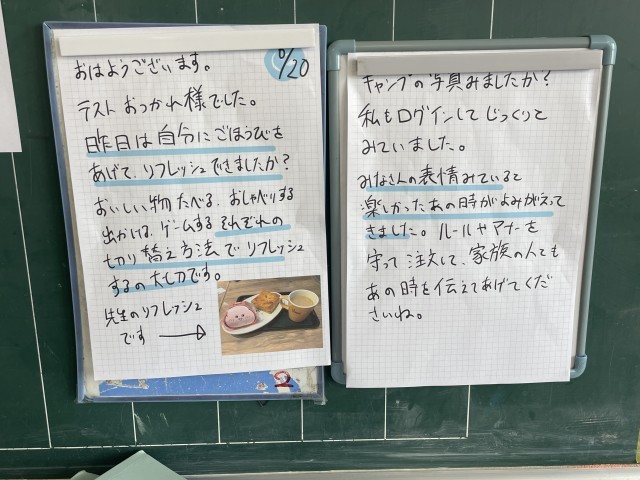 6/20
おはようございます。
テストおつかれ様でした。
昨日は自分にごほうびを
あげて、リフレッシュできましたか?
おいしい物たべる、おしゃべりする
出かける、ゲームするそれぞれの
切り替え方法でリフレッシュ
するの大切です。
先生のリフレッシュ
です →
キャンプの写真みましたか?
私もログインしてじっくりて
みていました。
みなさんの表情みていると
楽しかったあの時がよみがえって
きました。ルールやマナーを
守って注文して、家族の人ても
あの時を伝えてあげてくだ
さいね。